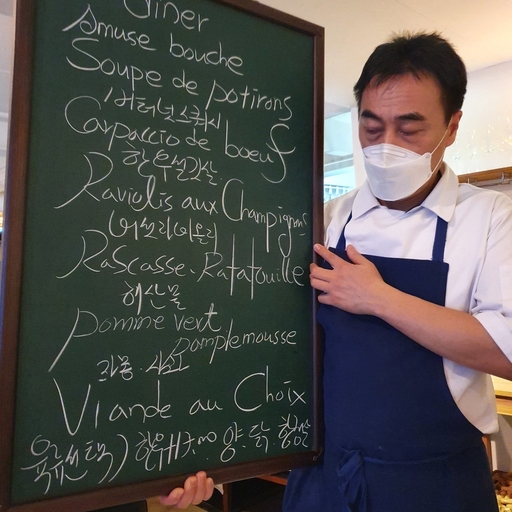 Diner
Amuse bouche
Soupe de potirons
버터넛스쿼시
Carpaccio de boeuf
한우설깃살
Raviolis aux Champignons
(버섯라비올리)
Rascasse. Ratatouille
해산물
pomme vert
pamplemousse
자몽.사과
Viande au Choix
육류선택)